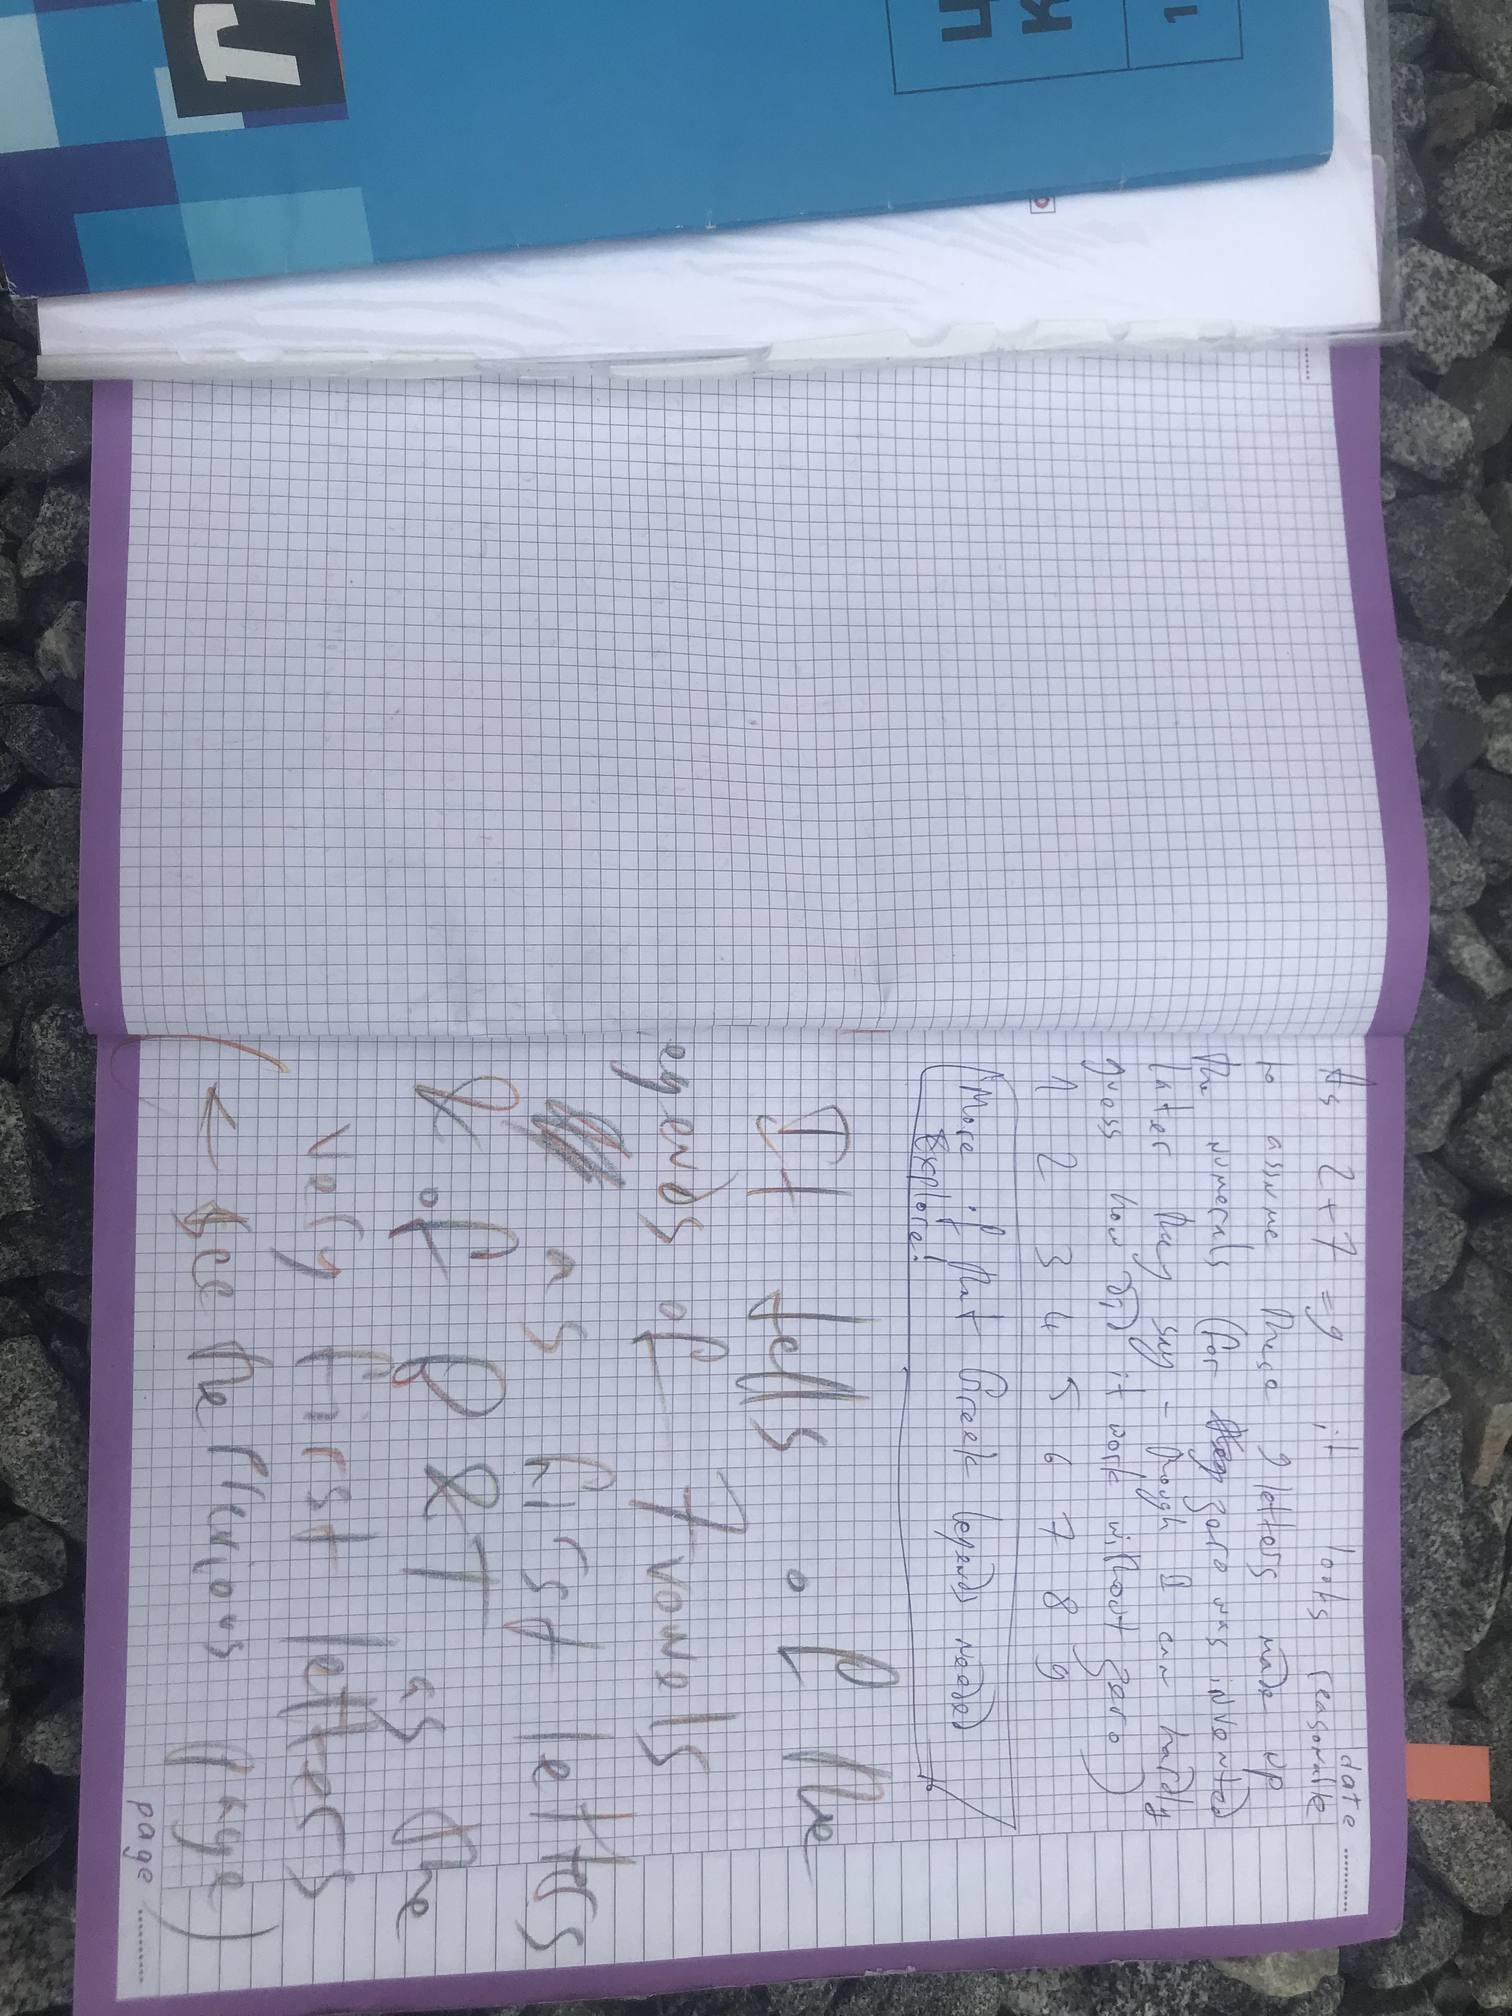 Ц
К
1
date ........
As 2+7=9 it looks reasonable
to assume these 9 letters made up
the numerals (for zero was invented
later they say - though I can hardly
guess how did it work without zero)
1 2 3 4 5 6 7 8 9
(More if that Greek legends needed
explore!
It tells of the
legends of 7 vowels
as first letters
& of P & T as the
very first letters
(← see the previous page)
page ........